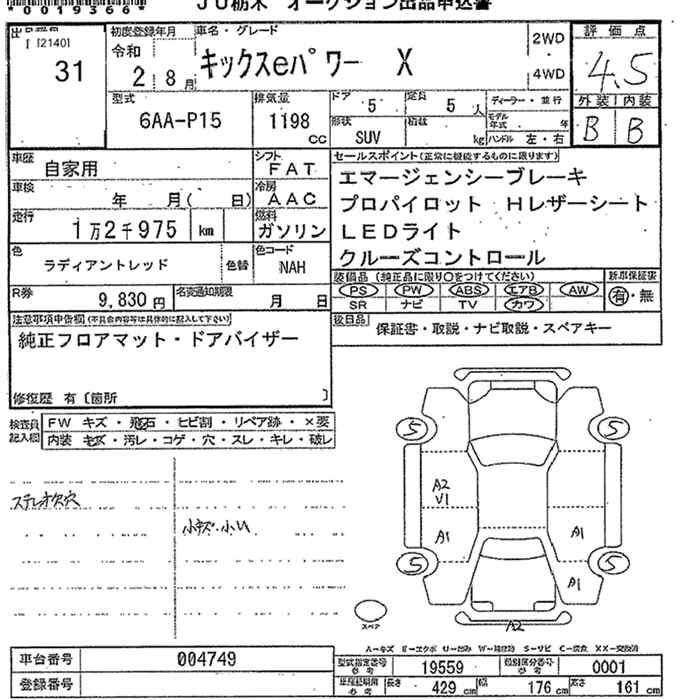 *0019366*
JU栃木 オークション出品申込書
[ [2140]
31
初度登録年月
令和
2 8月
車名・グレード
キックスeパワー X
2WD
4WD
評価点
4.5
外装 内装
B B
型式
6AA-P15
排気量
1198 cc
ドア 5
定員 5人
形状 SUV
積載 kg
ディーラー・並行
モデル年式 年
ハンドル 左・右
車歴 自家用
シフト FAT
車検 年 月( 日)
冷房 AAC
走行 1万2千975 km
燃料 ガソリン
色 ラディアントレッド
色替
色コード NAH
R券 9,830円
名変通知期限 月 日
セールスポイント(正常に機能するものに限ります)
エマージェンシーブレーキ
プロパイロット Hレザーシート
LEDライト
クルーズコントロール
装備品 (純正品に限り○をつけてください)
新車保証書
PS PW ABS エアB AW
SR ナビ TV カワ
有・無
後日品 保証書・取説・ナビ取説・スペアキー
注意事項申告欄(不具合内容等は具体的に記入して下さい)
純正フロアマット・ドアバイザー
修復歴 有〔箇所 〕
検査員記入欄
FW キズ・飛石・ヒビ割・リペア跡・×要
内装 キズ・汚レ・コゲ・穴・スレ・キレ・破レ
ステレオ欠穴
小キズ・小凹
5 5
A2
V1
A1 A1
5 5
A1
A2
スペア
A-キズ E-エクボ U-凹み W-補修跡 S-サビ C-腐食 XX-交換済
車台番号 004749
登録番号
型式指定番号 参考 19559
類別区分番号 参考 0001
長さ 429 cm
幅 176 cm
高さ 161 cm